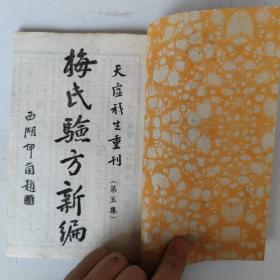 天虚我生重刊
（第五集）
梅氏驗方新編
西湖伊蘭題